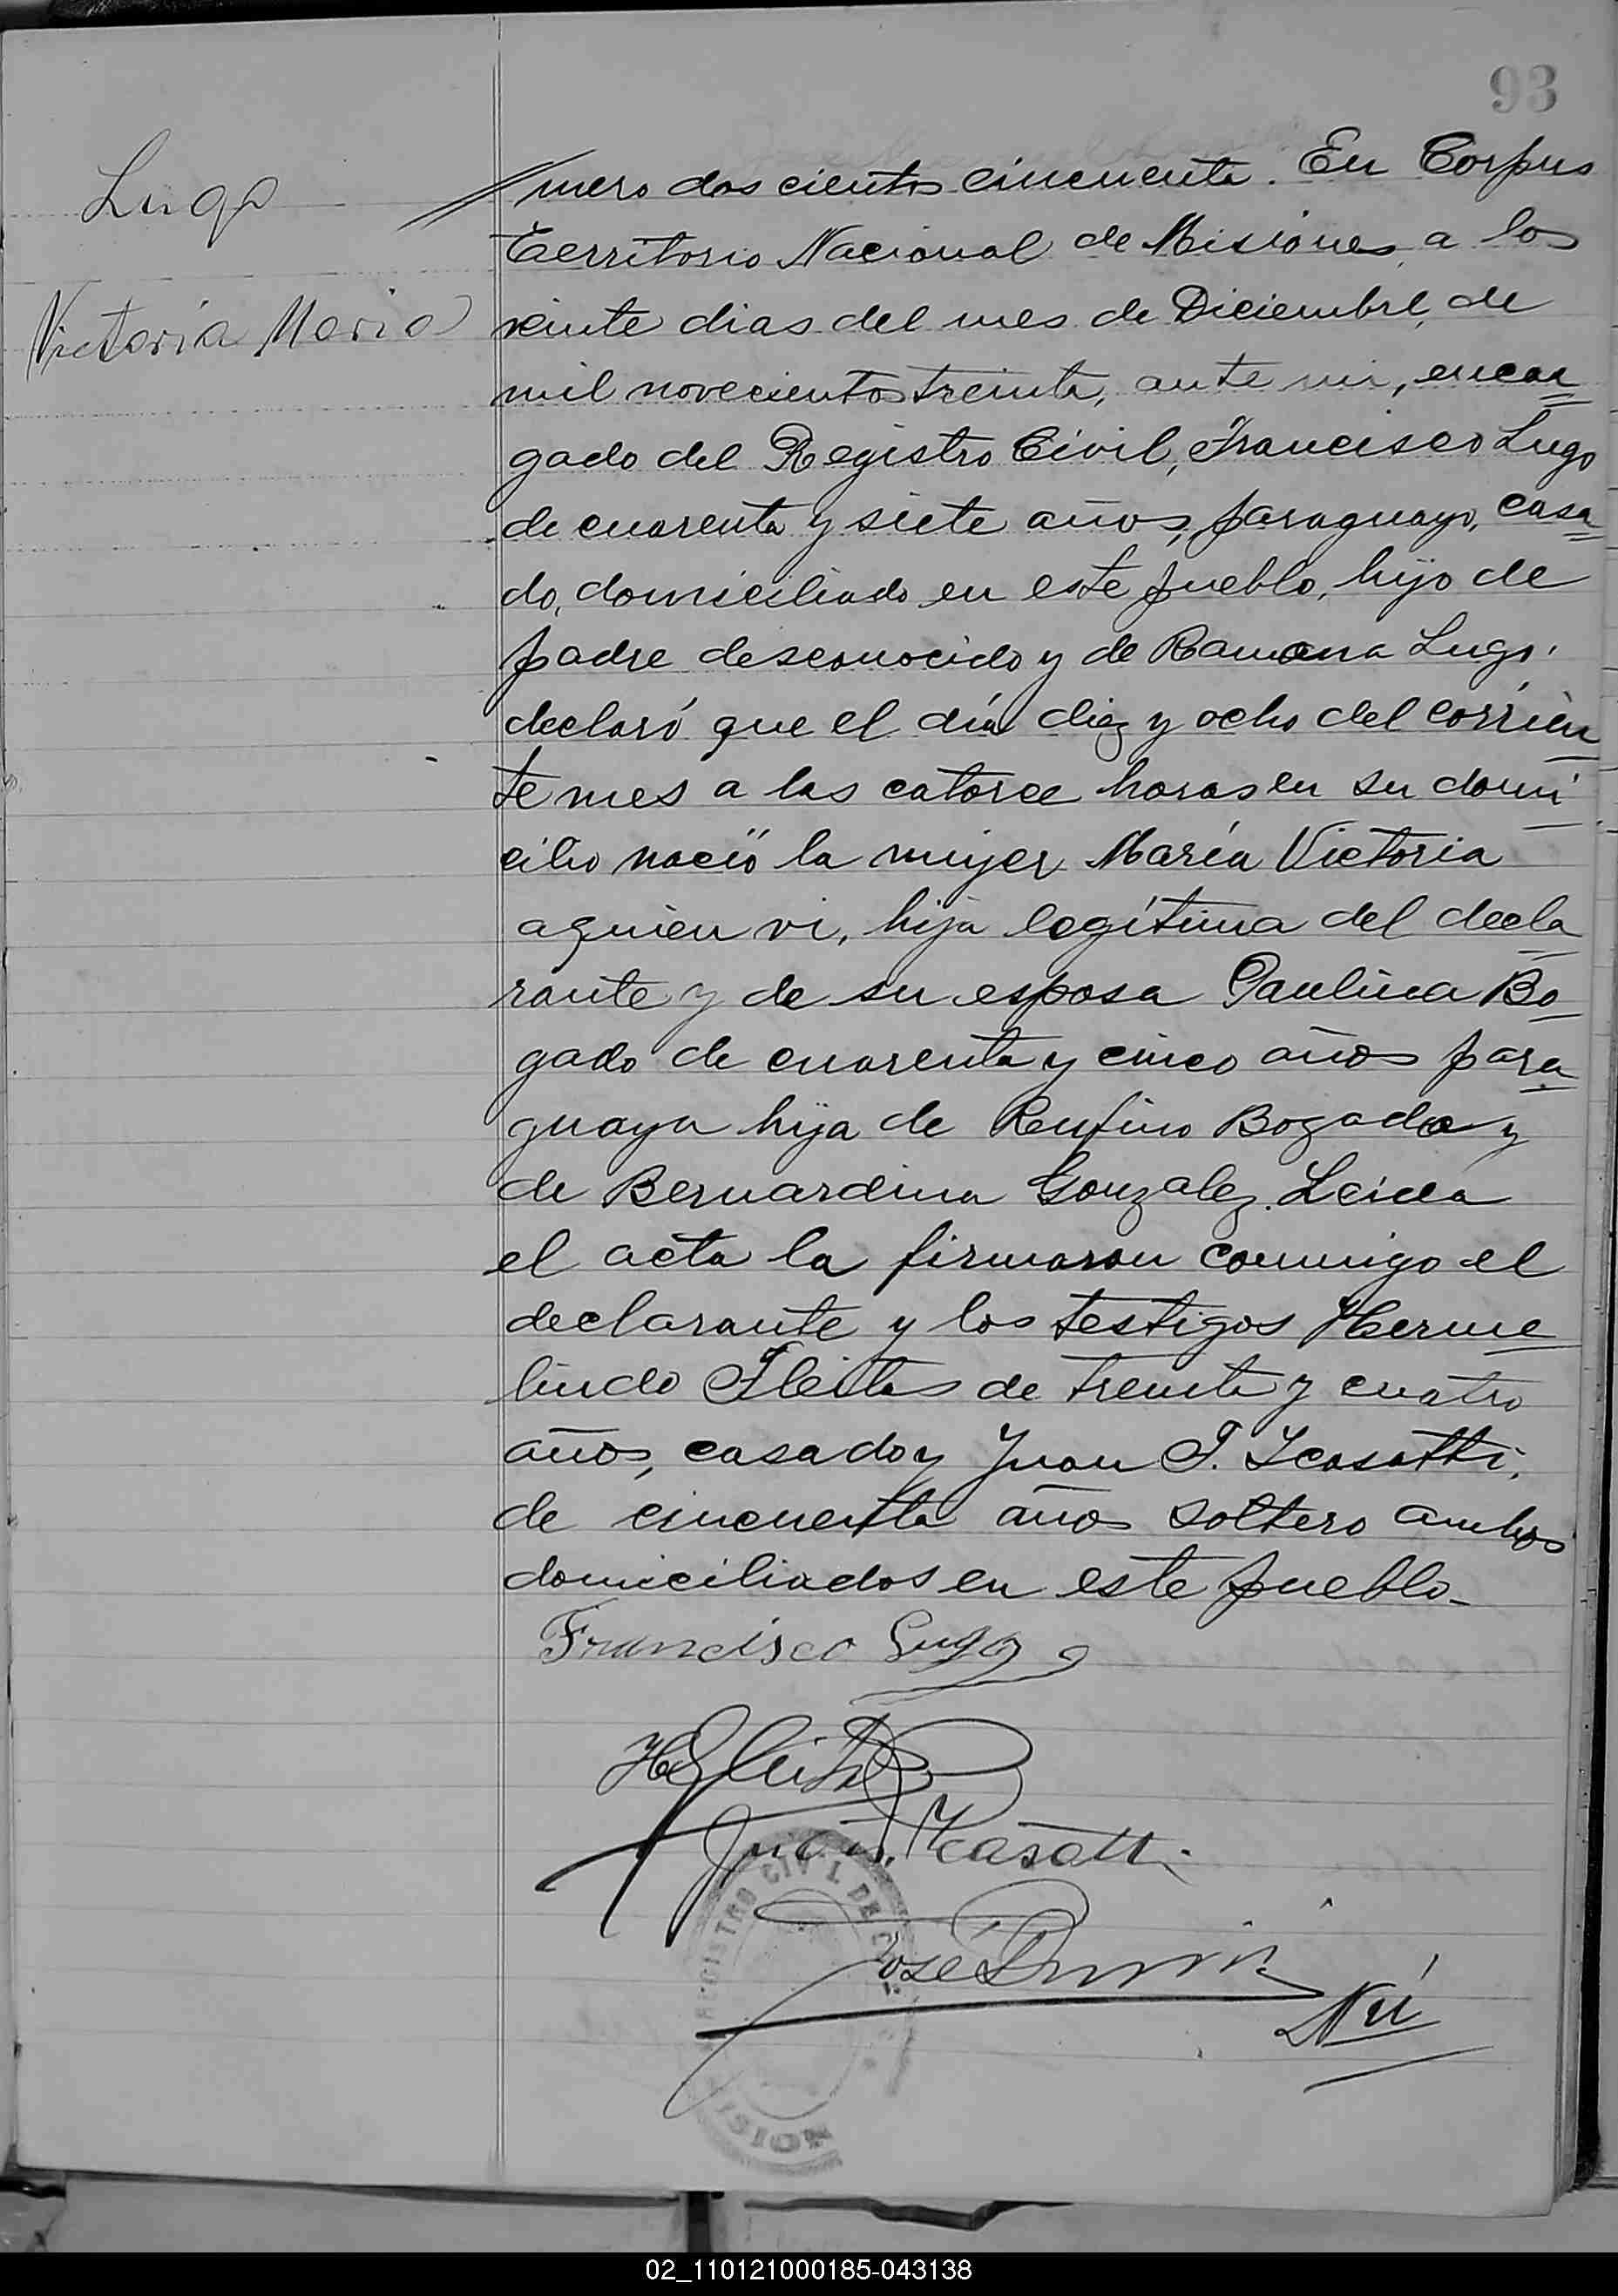 93
Lugo
Victoria Maria
mero dos cientos cincuenta. En Corpus
Territorio Nacional de Misiones, a los
veinte dias del mes de Diciembre, de
mil novecientos treinta, ante mi, encar
gado del Registro Civil, Francisco Lugo
de cuarenta y siete años, paraguayo, casa
do, domiciliado en este pueblo, hijo de
padre desconocido y de Ramona Lugo,
declaró que el día diez y ocho del corrien
te mes a las catorce horas en su domi
cilio nació la mujer María Victoria
a quien vi, hija legítima del decla
rante y de su esposa Paulina Bo
gado de cuarenta y cinco años para
guaya hija de Rufino Bogado y
de Bernardina Gonzalez. Leida
el acta la firmaron conmigo el
declarante y los testigos Herme
lindo Fleitas de treinta y cuatro
años, casado y Juan F. Icasatti,
de cincuenta años soltero ambos
domiciliados en este pueblo.
Francisco Lugo
H Fleitas
Juan Icasatti
REGISTRO CIVIL DE
José
Nú
02_110121000185-043138